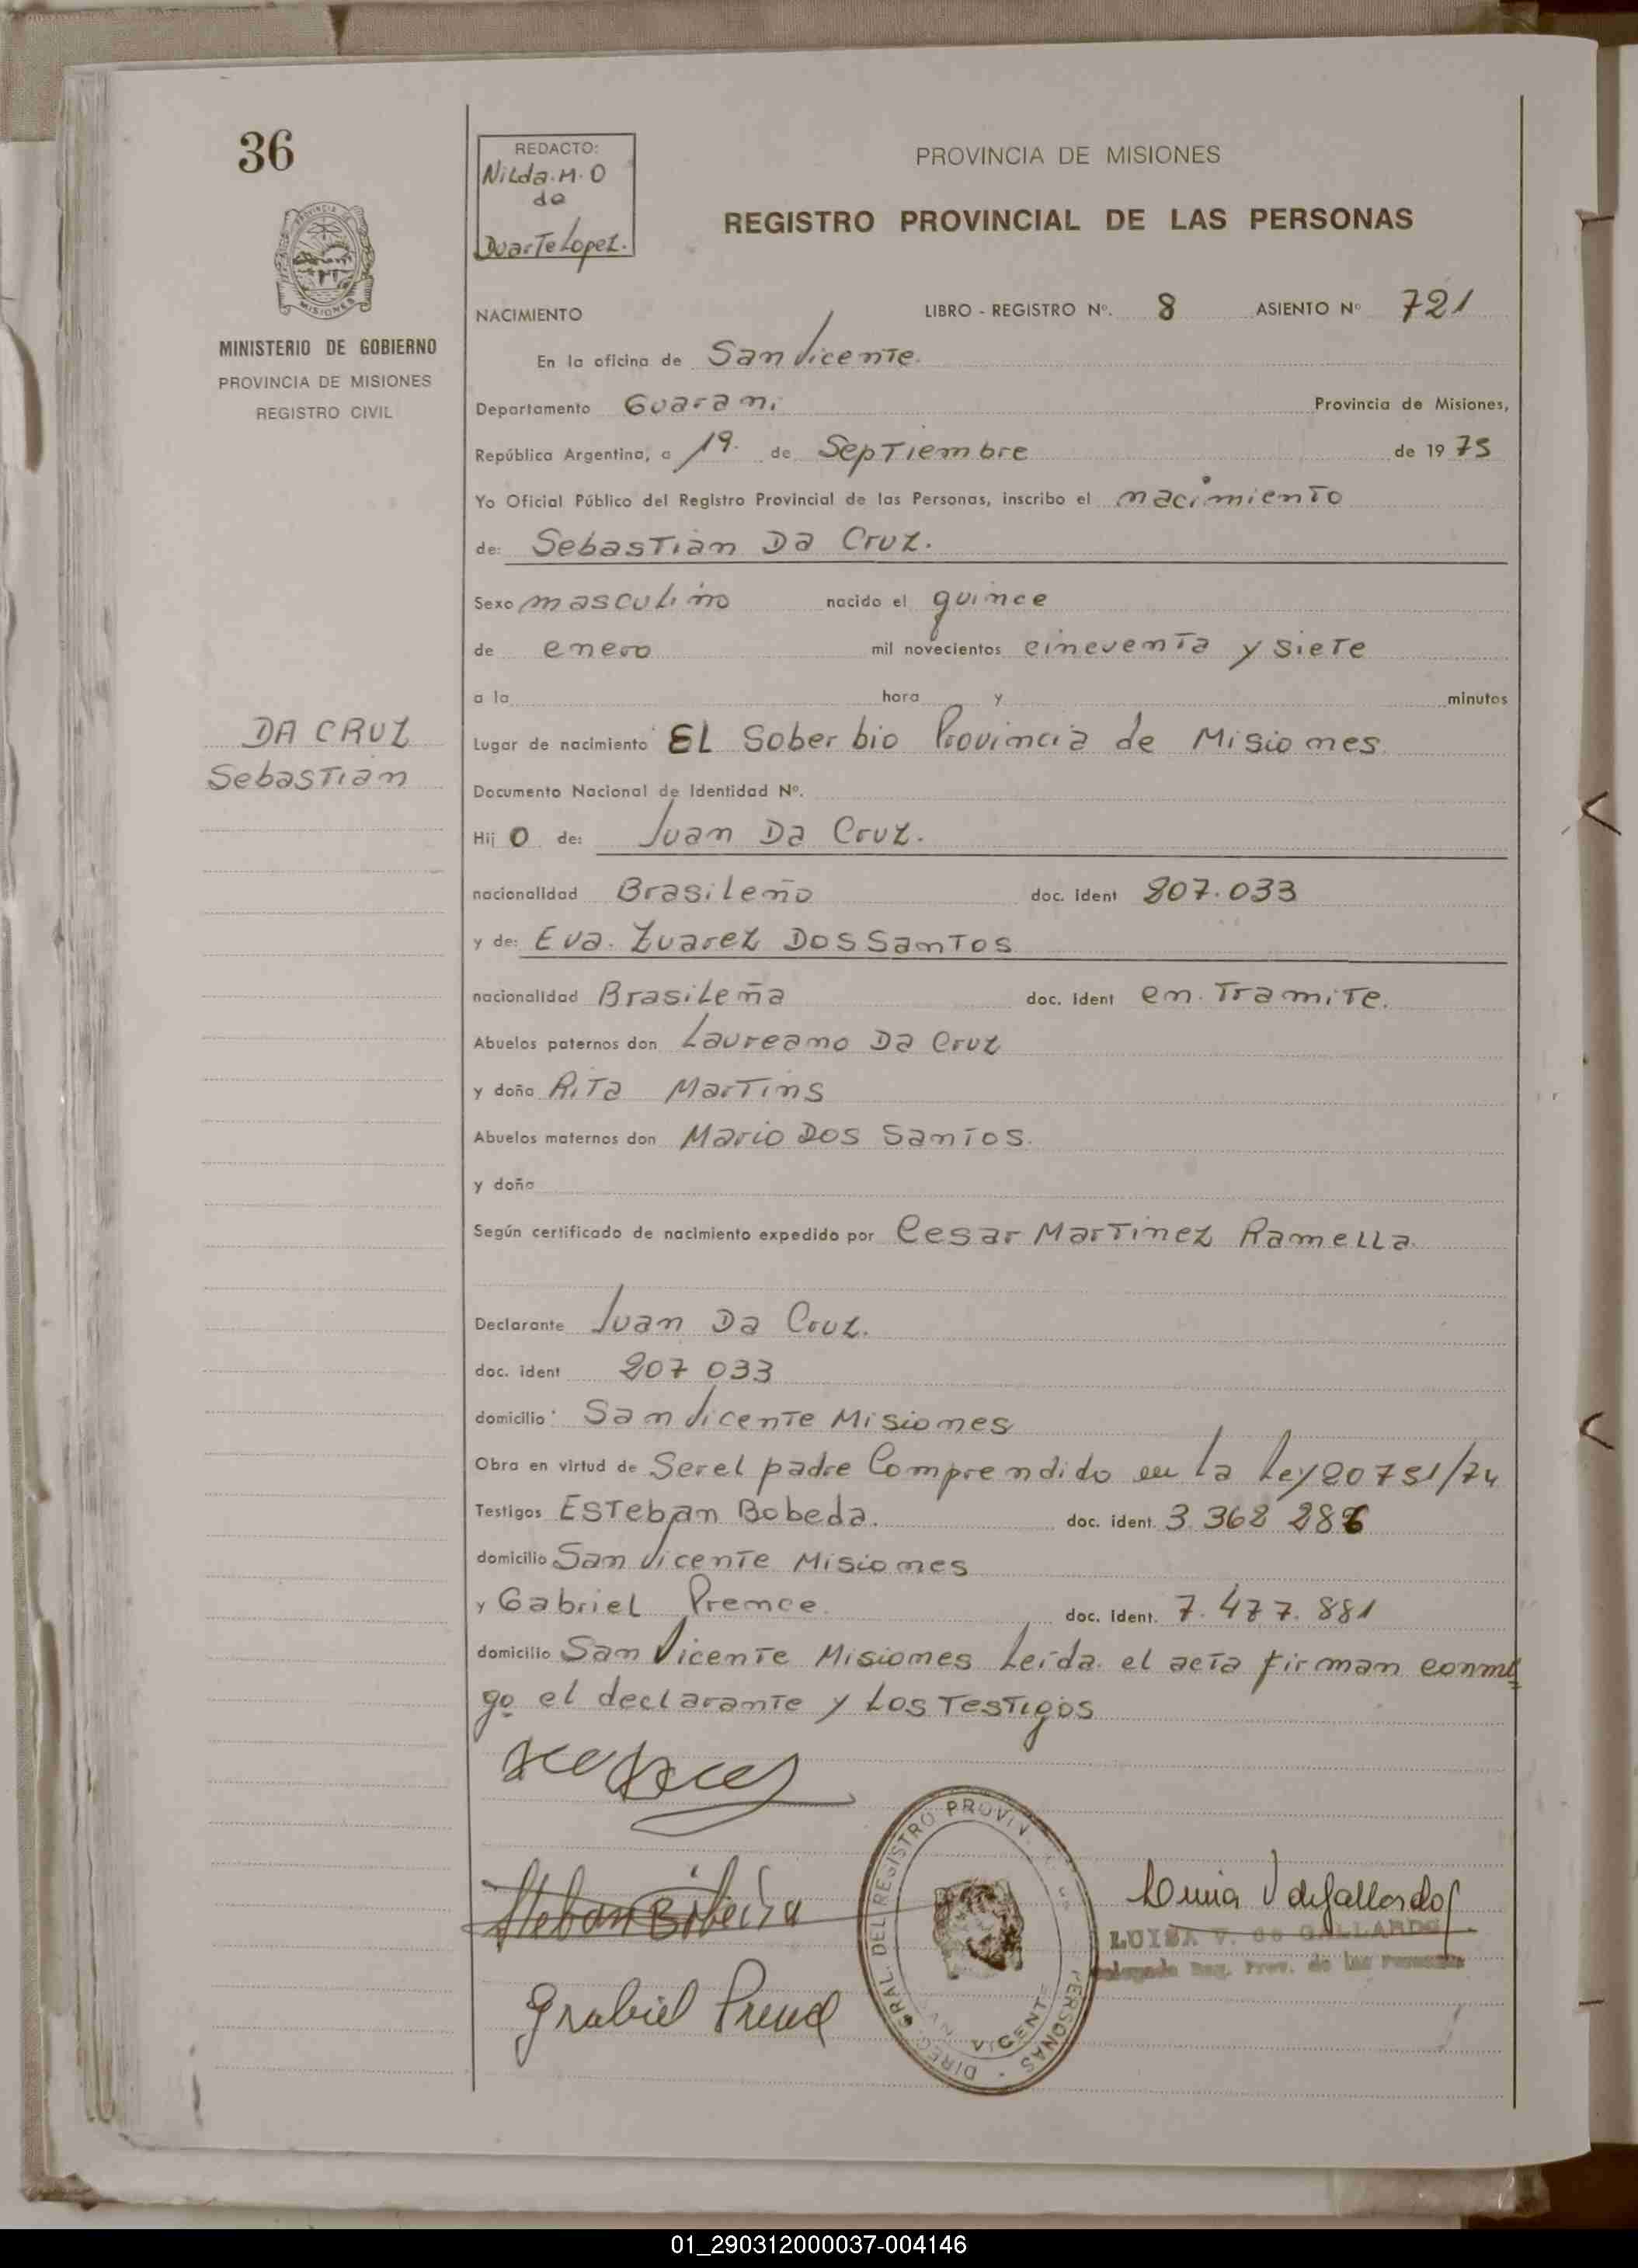 36
REDACTO:
Nilda.M.O
de
Duarte Lopez.
PROVINCIA DE MISIONES
REGISTRO PROVINCIAL DE LAS PERSONAS
MINISTERIO DE GOBIERNO
PROVINCIA DE MISIONES
REGISTRO CIVIL
NACIMIENTO LIBRO - REGISTRO Nº. 8 ASIENTO Nº 721
En la oficina de San Vicente.
Departamento Guarani Provincia de Misiones,
República Argentina, a 19. de Septiembre de 1975
Yo Oficial Público del Registro Provincial de las Personas, inscribo el nacimiento
de: Sebastian Da Cruz.
Sexo masculino nacido el quince
de enero mil novecientos cincuenta y siete
a la hora y minutos
DA CRUZ
Sebastian
Lugar de nacimiento EL Soberbio Provincia de Misiones
Documento Nacional de Identidad Nº.
Hij o de: Juan Da Cruz.
nacionalidad Brasileño doc. ident 207.033
y de: Eva. Zuarez Dos Santos
nacionalidad Brasileña doc. ident en Tramite.
Abuelos paternos don Laureano Da Cruz
y doña Rita Martins
Abuelos maternos don Mario Dos Santos.
y doña
Según certificado de nacimiento expedido por Cesar Martinez Ramella
Declarante Juan Da Cruz.
doc. ident 207 033
domicilio San Vicente Misiones
Obra en virtud de Ser el padre Comprendido en la Ley 20751/74
Testigos Esteban Bobeda. doc. ident. 3 362 286
domicilio San Vicente Misiones
y Gabriel Prence. doc. ident. 7.477.881
domicilio San Vicente Misiones Leída el acta firman conmi
go el declarante y Los Testigos
DIREC. GRAL. DEL REGISTRO PROVIN PERSONAS
VICENTE
LUISA V. de GALLARDO
Delegada Reg. Prov. de las Personas
01_290312000037-004146